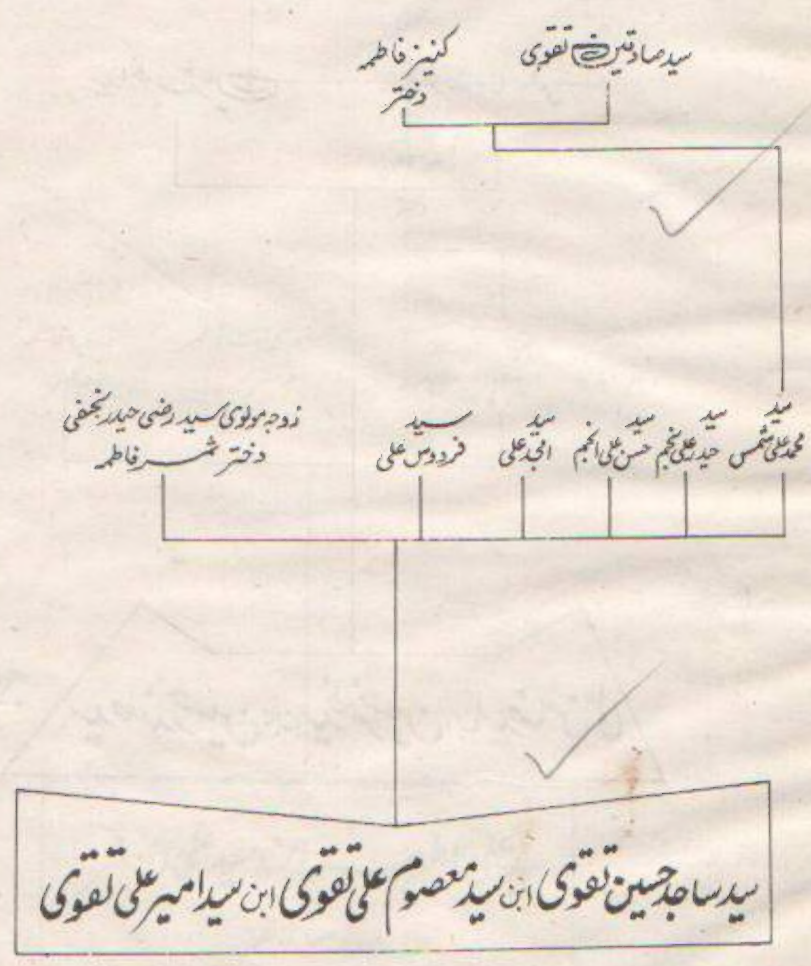 سید صادقین تقوی
کنیز فاطمہ
دختر
سید
محمد علی شمس
سید
حیدر علی نجم
سید
حسن علی انجم
سید
امجد علی
سید
فردوس علی
زوجہ مولوی سید رضی حیدر نجفی
دختر ثمر فاطمہ
سید ساجد حسین تقوی ابن سید معصوم علی تقوی ابن سید امیر علی تقوی